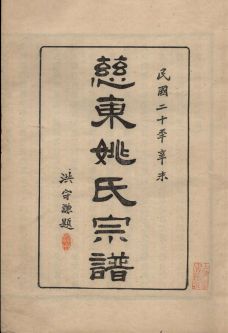 民國二十年辛未
慈東姚氏宗譜
洪守謙題